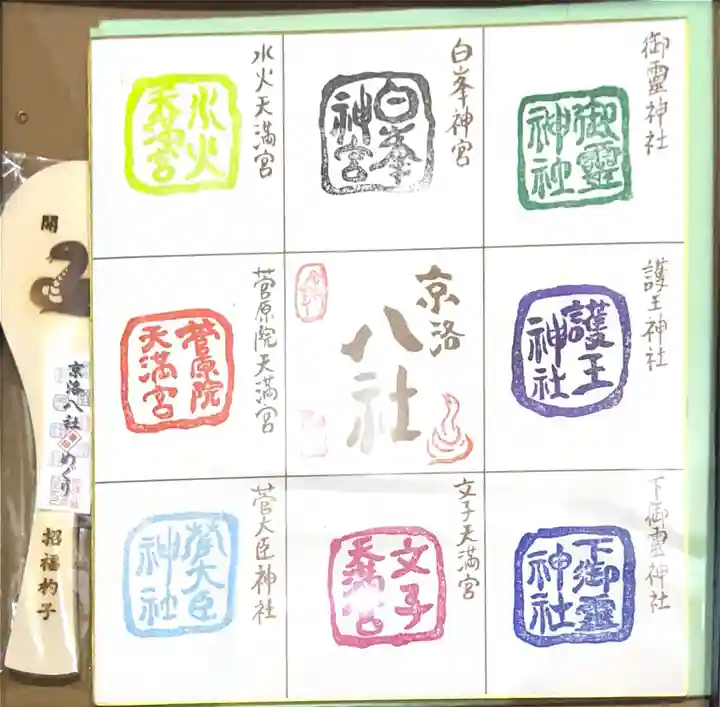 御靈神社
御靈
神社
白峯神宮
白峯
神宮
水火天満宮
水火
天満宮
護王神社
護王
神社
京洛
八社
菅原院天満宮
菅原院
天満宮
下御霊神社
下御靈
神社
文子天満宮
文子
天満宮
菅大臣神社
菅大臣
神社
開
京洛八社
めぐり
招福杓子